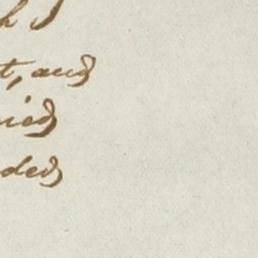 h I
t, and
ied
ded